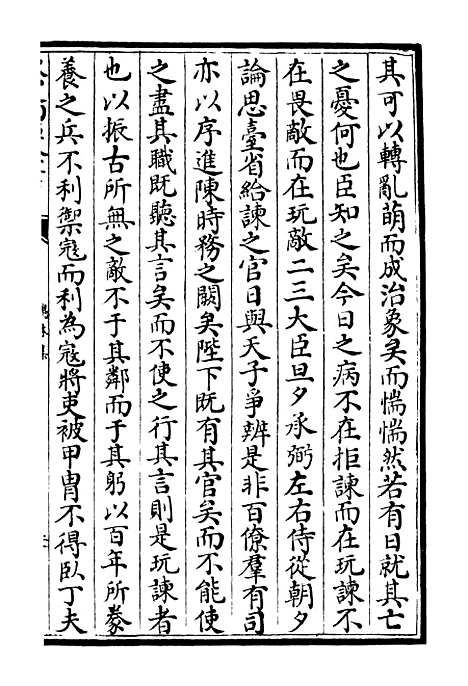 其可以轉亂萌而成治象矣而惴惴然若有日就其亡
之憂何也臣知之矣今日之病不在拒諫而在玩諫不
在畏敵而在玩敵二三大臣旦夕承弼左右侍從朝夕
論思臺省給諫之官日與天子爭辨是非百僚羣有司
亦以序進陳時務之闕矣陛下既有其官矣而不能使
之盡其職既聽其言矣而不使之行其言則是玩諫者
也以振古所無之敵不于其鄰而于其躬以百年所豢
養之兵不利禦寇而利為寇將吏被甲胄不得臥丁夫